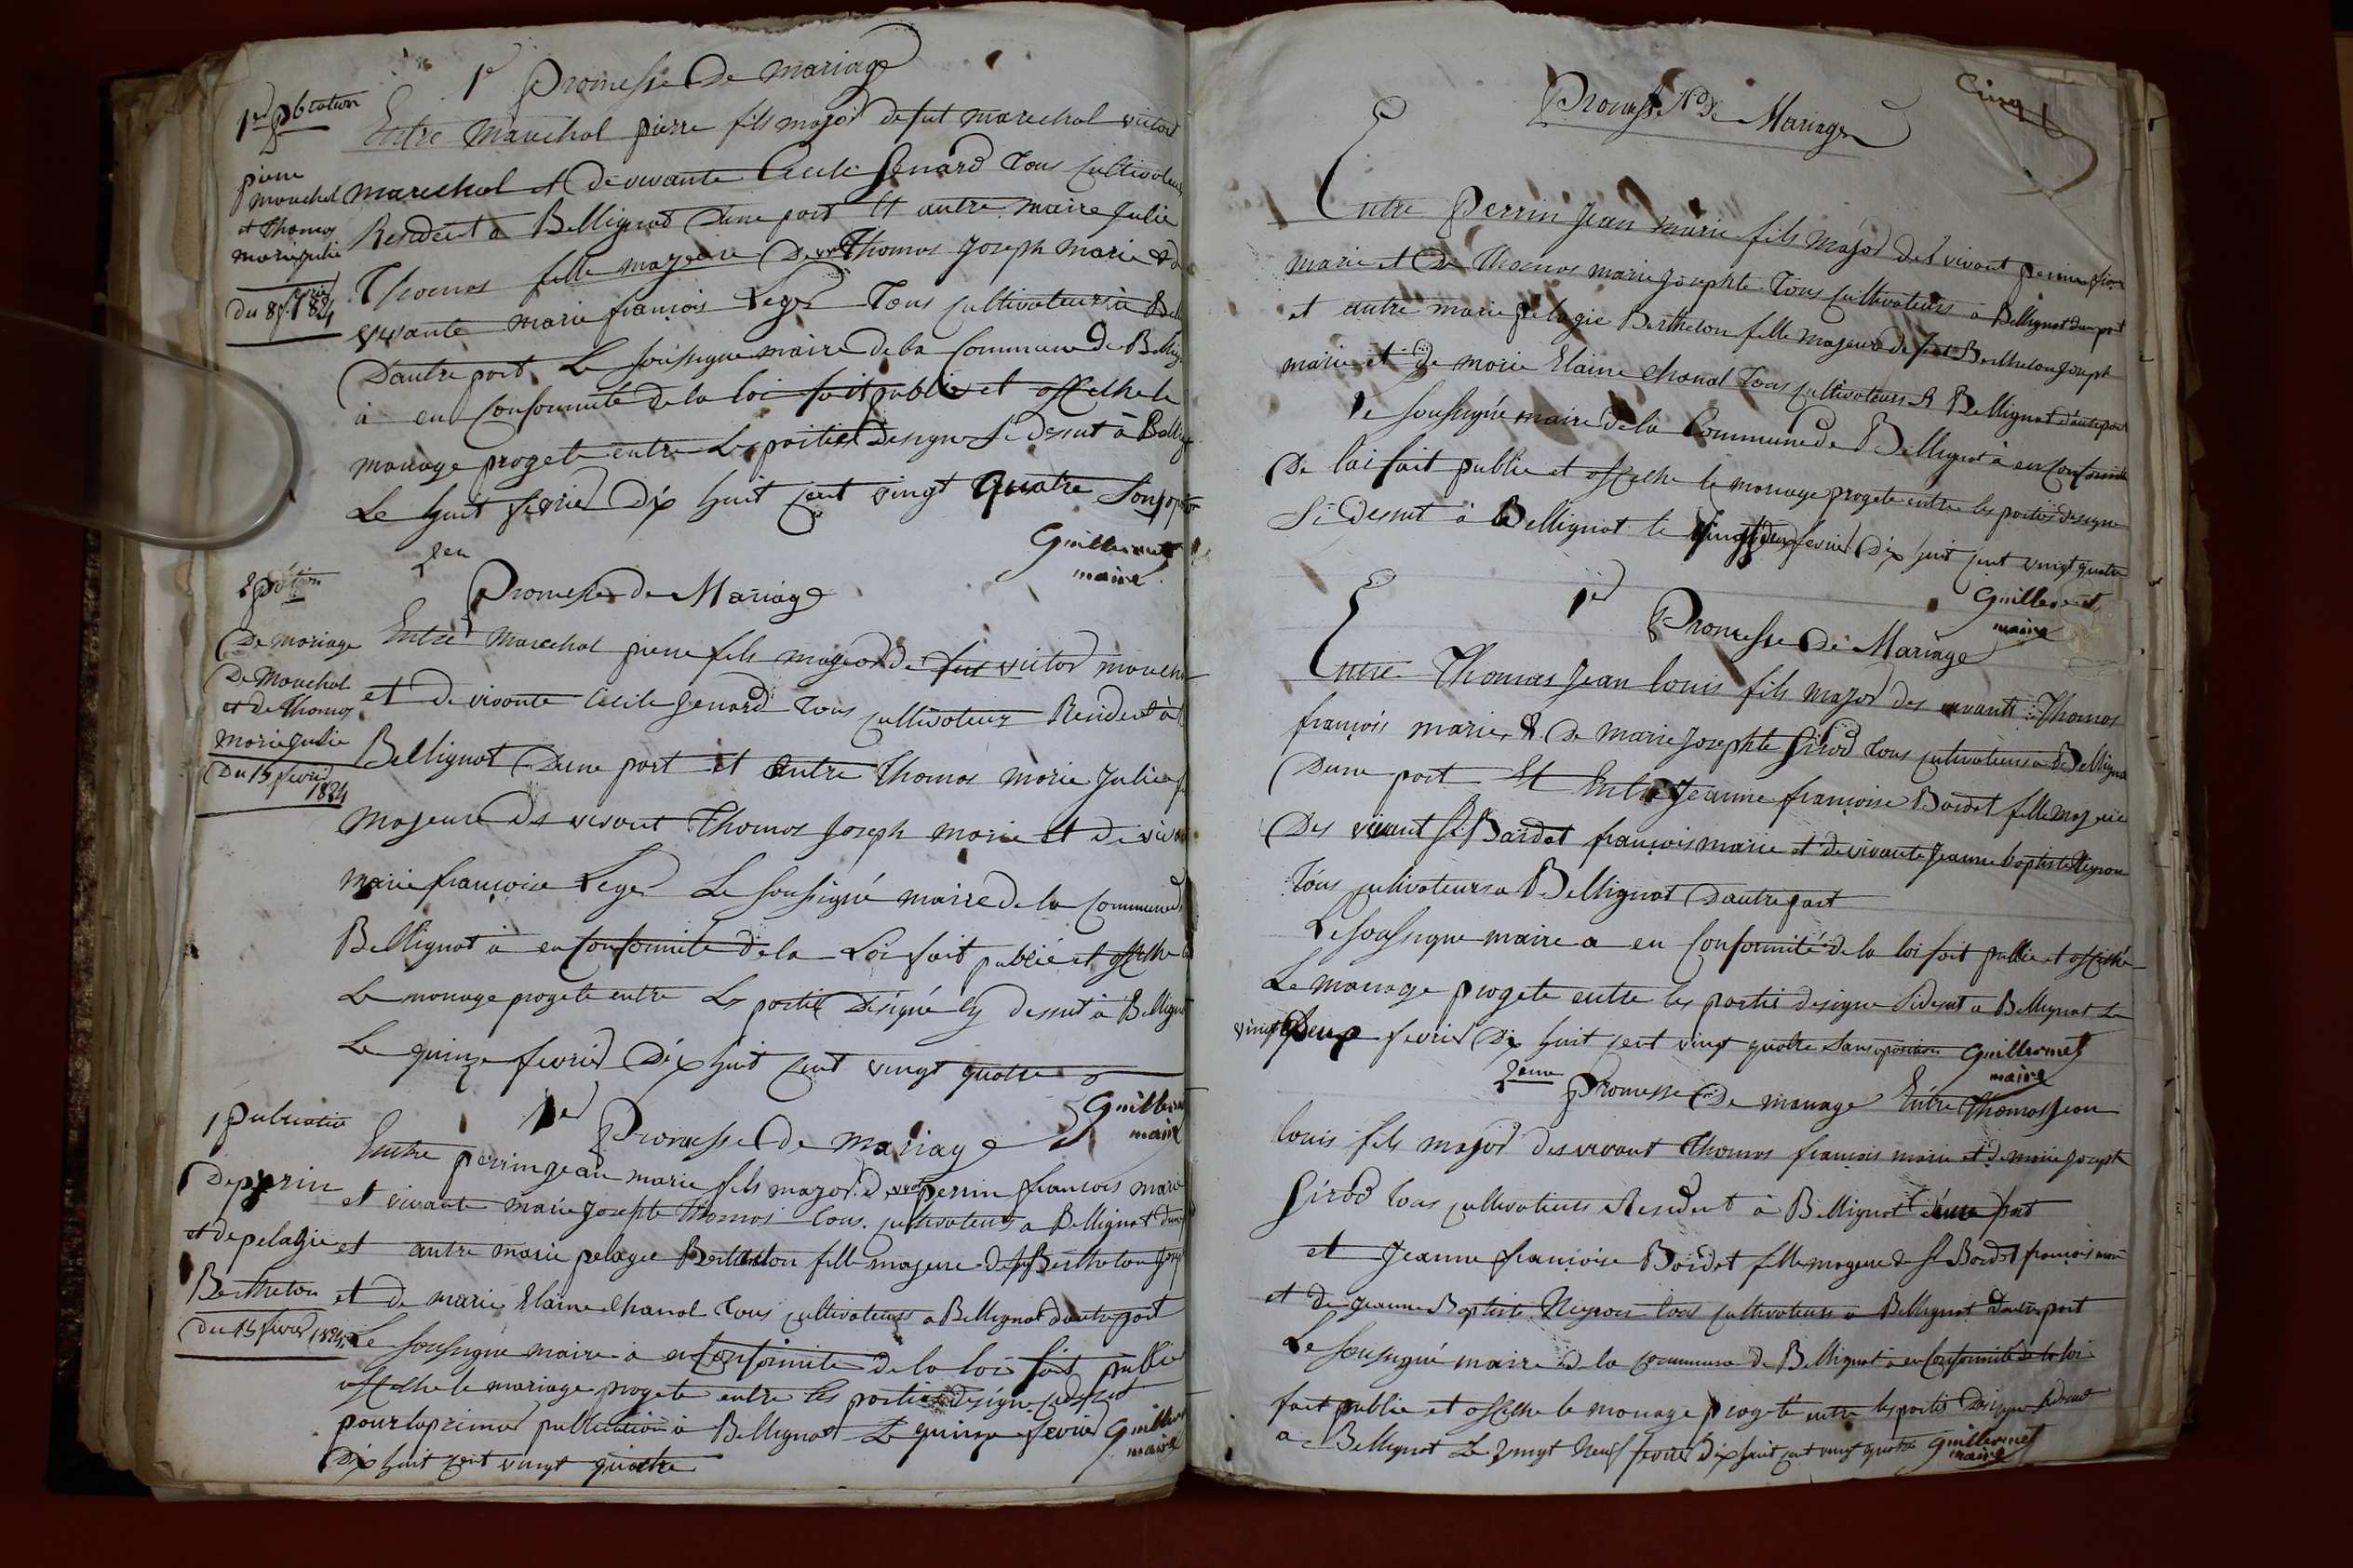 1e Promesse De mariage
1er pbication
Entre Marechal pierre fils major de fut marechal victor
pierre
marechal
et Thomas
marie julie
du 8 fevrie
1824
marechal et de vivante Cecile Genard Tous Cultivateurs
Resident a Bellignat Dune part Et autre marie Julie
Thomas fille majeure De vt Thomas Joseph marie & d
vivante marie françois Leger Tous cultivateurs à Bel
Dautre part Le soussigne maire de la Commune de Bellig
à en Conformité de la loi fait publie et affiche le
mariage progete entre Les parties Designe Si Dessut à Bellig
Le huit fevrier Dix huit cent vingt quatre
Guillermet
maire
2en
Promesse de Mariage
2 pbtion
De mariage
De Marechal
et de Thomas
marie Julie
Du 15 fevrier
1824
Entre Marechal pierre fils mageord de fut victor marech
et de vivante Cecile Genard Tous cultivateurs Resident à
Bellignat Dune part et Entre Thomas Marie Julie f
Majeure de vivant Thomas Joseph marie et de viva
Marie françoise Leger Le soussigné maire de la Commune d
Bellignat à en Conformite de la Loi fait publié et affiche
Le mariage progete entre Les parties Désigné cy dessut à Bellignat
Le quinze fevrier Dix huit cent vingt quatre
Guillerm
maire
1er Promesse De mariage
1 publicatio
De perrin
et de pelagie
Berthelon
Du 15 fevrier 1824
Entre perrin jean marie fils major de vvat perrin francois marie
et vivante marie josephte Thomas Tous cultivateurs a Bellignat dune
et autre marie pelagie Berthelon fille majeure de fut Berthelon josep
et de marie Elaine chanal Tous cultivateurs a Bellignat dautre part
Le soussigne maire à en Conformite de la loi fait publie
affiche le mariage progete entre les parties designe
pour la primier publication à Bellignat Le quinze fevrier
Dix huit cent vingt quatre
Guillerm
maire
Cinq
Promesse De Mariage
Entre Perrin Jean Marie fils Major det vivant perrin fran
marie et De Thomas marie josephte Tous cultivateurs a Bellignat dune part
et autre marie pelagie Berthelon fille majeure de fut Berthelon joseph
marie et de marie Elaine chanal Tous cultivateurs A Bellignat d'autre part
le soussigné maire de la Commune de Bellignat à en Conformite
De lai fait publie et affiche le mariage progete entre les parties designe
Si Dessut à Bellignat le vingt deux fevrier Dix huit cent vingt quatre
Guillermet
maire
1er
Promesse De Mariage
Entre Thomas Jean louis fils major des vivants Thomas
françois marie & De Marie Josephte Girod Tous cultivateurs a Bellignat
Dune part Et Entre Jeanne françoise Bardot fille majeure
Des vivant Bardot françois marie et de vivante Jeanne baptiste Neyron
Tous cultivateurs a Bellignat Dautre part
Le soussigne maire a en Conformité de la loi fait publie et affiche
Le mariage progete entre les partis designe Sidessut a Bellignat Le
vingt Deux fevrier Dix huit cent vingt quatre Sans oposition Guillermet
maire
2eme
Promesse De mariage Entre Thomas Jean
louis fils major des vivant Thomas francois marie et de marie joseph
Girod Tous cultivateurs Resident à Bellignat d'une part
et Jeanne françoise Bardot fille mageure de Bardot francois marie
et De jeanne Baptiste Neyron tous cultivateurs a Bellignat Dautre part
Le soussigné maire de la commune de Bellignat à en Conformité de la loi
fait publie et affiche le mariage progeté entre les partis Designe Sidessut
a Bellignat Le vingt Neuf fevrier dix huit cent vingt quatre Guillermet
maire